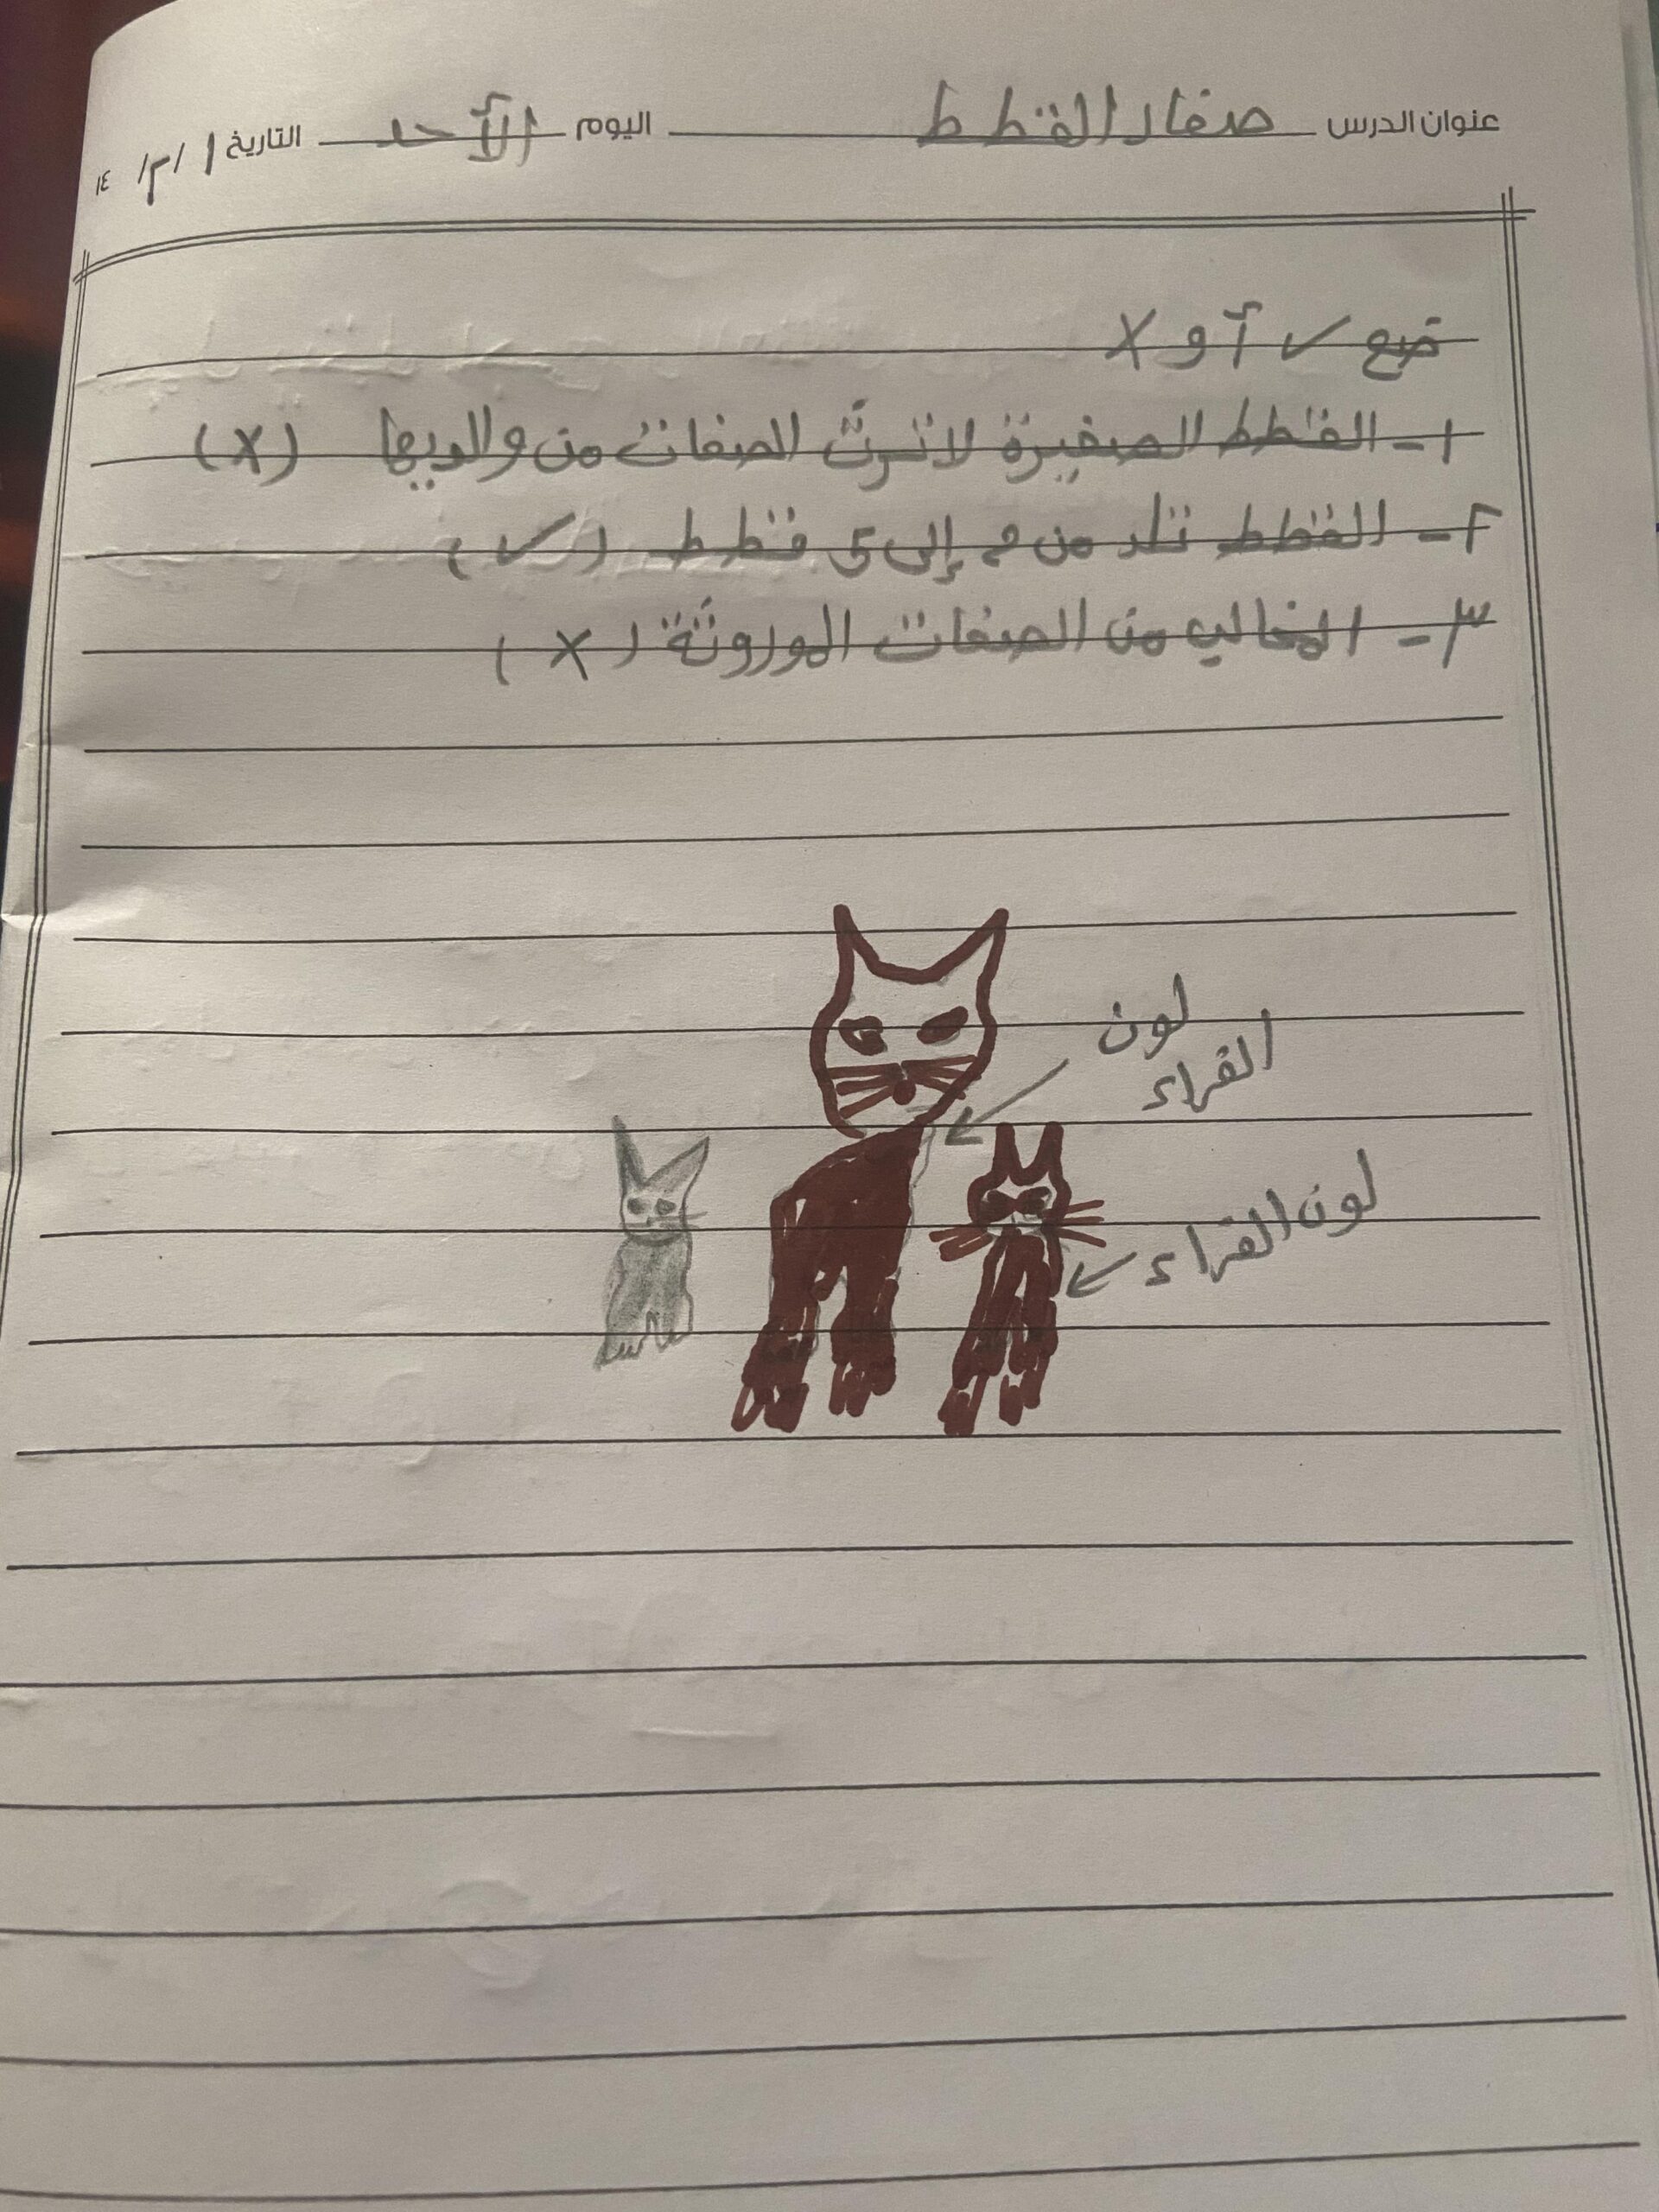 عنوان الدرس صغار القطط اليوم الأحد التاريخ ١ / ٣ / ١٤
ضع ✓ أو X
١- القطط الصغيرة لا ترث الصفات من والديها (X)
٢- القطط تلد من 2 إلى 5 قطط (✓)
٣- المخالب من الصفات الموروثة (X)
لون
الفراء
لون الفراء